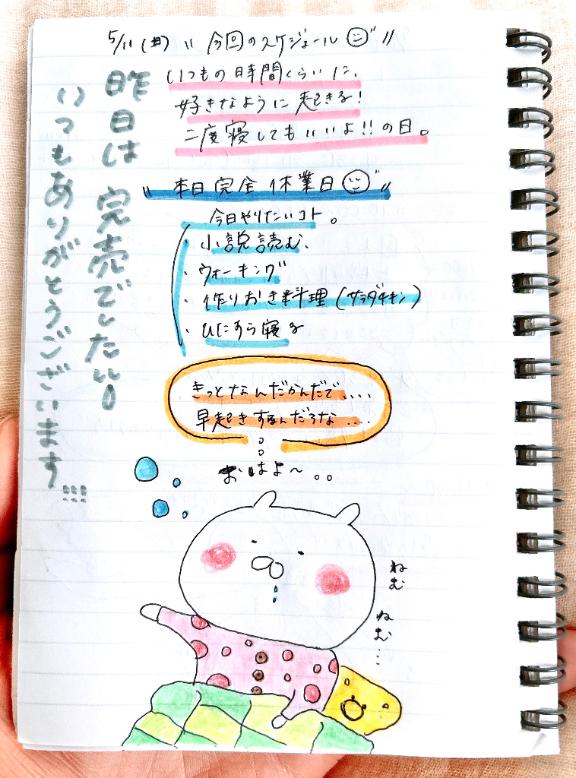 5/11(木) "今回のスケジュール"
いつもの時間くらいに、
好きなように起きる!
二度寝してもいいよ!!の日。
"本日完全休業日"
今日やりたいコト。
・小説読む、
・ウォーキング
・作りおき料理(サラダチキン)
・ひたすら寝る
きっとなんだかんだで....
早起きするんだろうな....
おはよ〜。。
ねむ
ねむ…
昨日は完売でした!!
いつもありがとうございます!!!